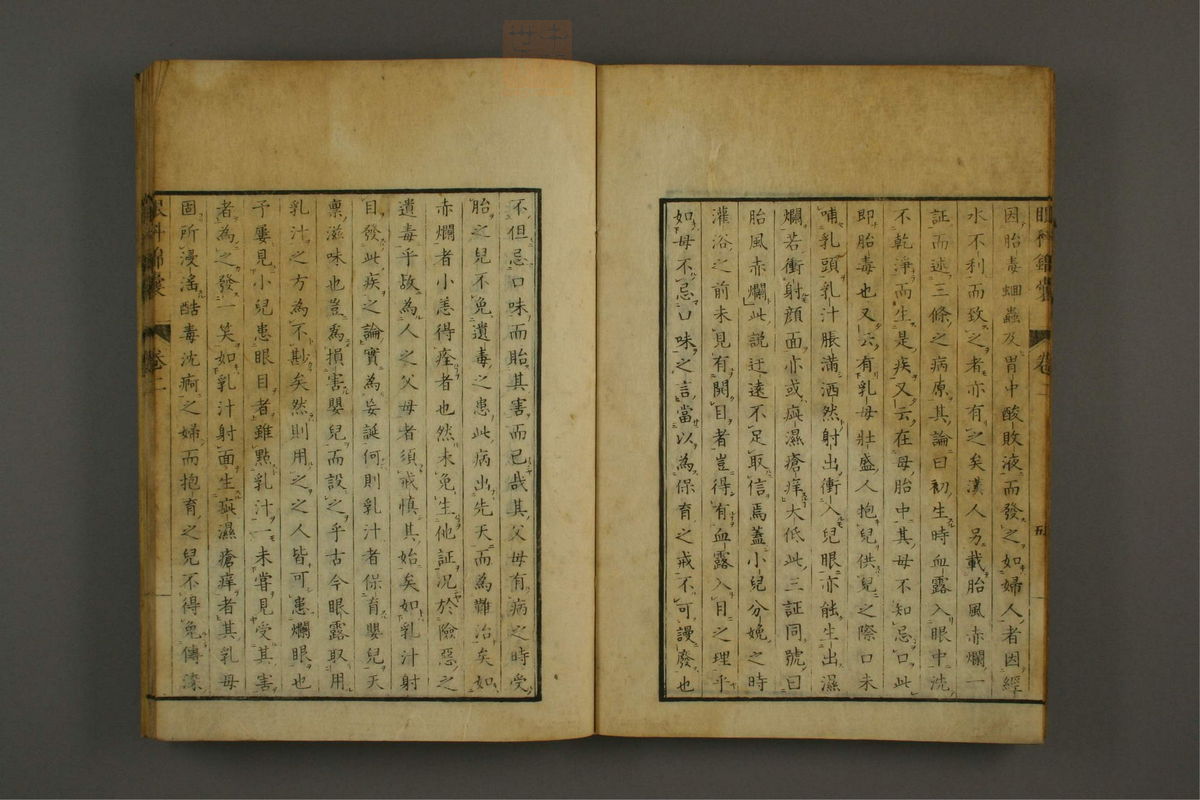 因胎毒蛔蟲及胃中酸敗液而發之如婦人者因經
水不利而致之者亦有之矣漢人另載胎風赤爛一
証而述三條之病原其論曰初生時血露入眼中洗
不乾淨而生是疾又云在母胎中其母不知忌口此
即胎毒也又云有乳母壯盛人抱兒供兒之際口未
哺乳頭乳汁脹滿洒然射出衝入兒眼亦能生出濕
爛若衝射顔面亦或㾔濕瘡痒大低此三証同號曰
胎風赤爛此説迂遠不足取信焉蓋小兒分娩之時
灌浴之前未見有開目者豈得有血露入目之理乎
如母不忌口味之言當以為保育之戒不可謾廢也
眼科錦囊 卷二 五
不但忌口味而貽其害而已哉其父母有病之時受
胎之兒不免遺毒之患此病出先天而為難治矣如
赤爛者小恙得痊者也然未免生他証況於險惡之
遺毒乎故為人之父母者須戒慎其始矣如乳汁射
目發此疾之論實為妄誕何則乳汁者保育嬰兒天
稟滋味也豈為損害嬰兒而設之乎古今眼露取用
乳汁之方為不尠矣然則用之之人皆可患爛眼也
予屢見小兒患眼目者雖點乳汁一未嘗見受其害
者為之發一笑如乳汁射面生㾔濕瘡痒者其乳母
固所漫滛酷毒沈痾之婦而抱育之兒不得免傳染
眼科錦囊 卷二